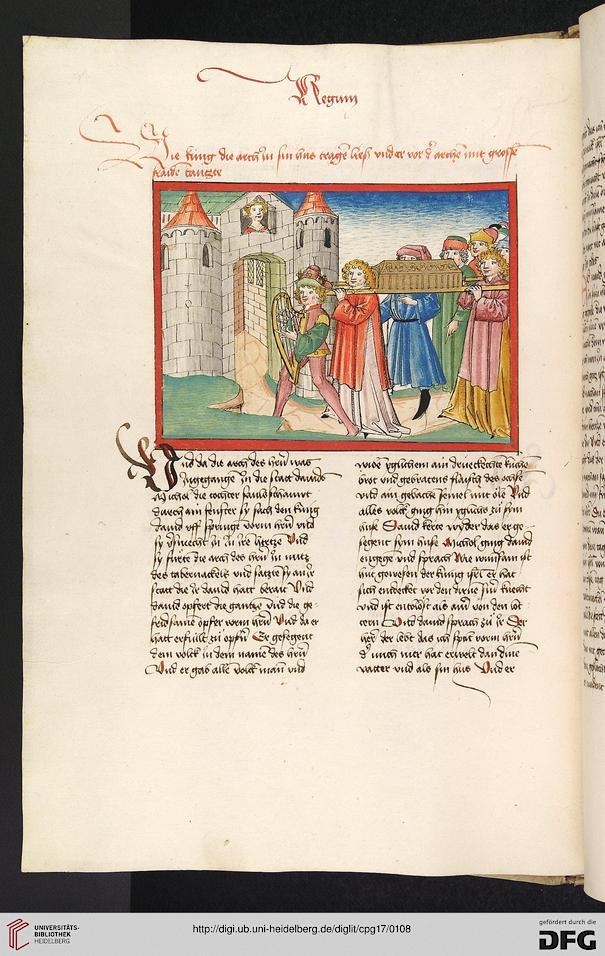 Regum
Wie küng die arch in sin hus tragen ließ vnd er vor der archen mit grosser
fraide tanczte
Vnd da die arch des herrn was
ingegangen in die statt dauids
Michol die tochter sauls schauwt
durch ain fenster sy sach den küng
dauid vff springe vorm herrn vnd
sy versmecht in in ire hertze Vnd
sy fürte die arch des herrn in mitz
des tabernackels vnd satzte sy an ir
statt die ir dauid hatt berait Vnd
dauid opfert die gantze vnd die ge-
fridsame opfer vorm herrn Vnd da er
hatt erfüllt zu opfern Er gesegent
dem volck in dem name des herrn
Vnd er gab alle volck mann vnd
wibe yglichem ain
brot vnd gebratens flaisch des ochse
vnd ain gebache semel mit öle Vnd
alles volck ging hin yglichs zu sym
huse Dauid kerte wyder das er ge-
segent sym huse Michol ging dauid
engege vnd sprach Wie wunsam ist
hut gewesen der küng isrl er hat
sich entdecket vor den dirne sinr knecht
vnd ist emblöst als ainer von den lot
tern Vnd dauid sprach zu ir Der
herr der lebt das ich spil vorm herrn
der mich mer hat erwelt dan dine
vatter vnd als sin hus Vnd er
UNIVERSITÄTS-
BIBLIOTHEK
HEIDELBERG
http://digi.ub.uni-heidelberg.de/diglit/cpg17/0108
gefördert durch die
DFG